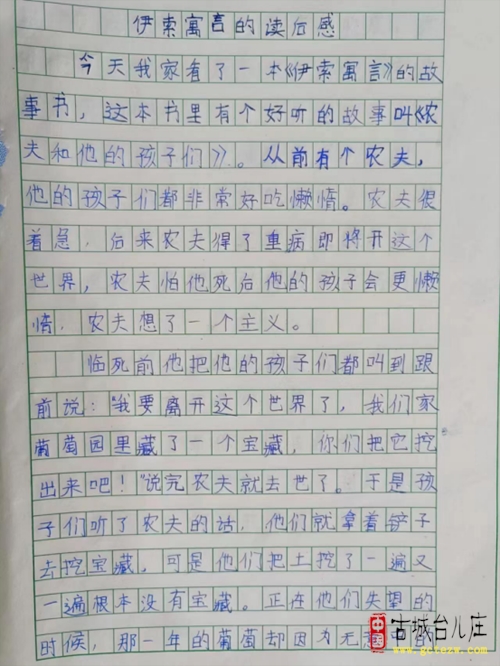 伊索寓言的读后感
今天我家看了一本《伊索寓言》的故
事书，这本书里有个好听的故事叫《农
夫和他的孩子们》。从前有个农夫，
他的孩子们都非常好吃懒惰。农夫很
着急，后来农夫得了重病即将开这个
世界，农夫怕他死后他的孩子会更懒
惰．农夫想了一个主义。
临死前他把他的孩子们都叫到跟
前说："我要离开这个世界了，我们家
葡萄园里藏了一个宝藏，你们把它挖
出来吧！"说完农夫就去世了。于是孩
子们听了农夫的话，他们就拿着铲子
去挖宝藏，可是他们把土挖了一遍又
一遍根本没有宝藏。正在他们失望的
时候，那一年的葡萄却因为无
中国古城台儿庄
www.gctezw.com